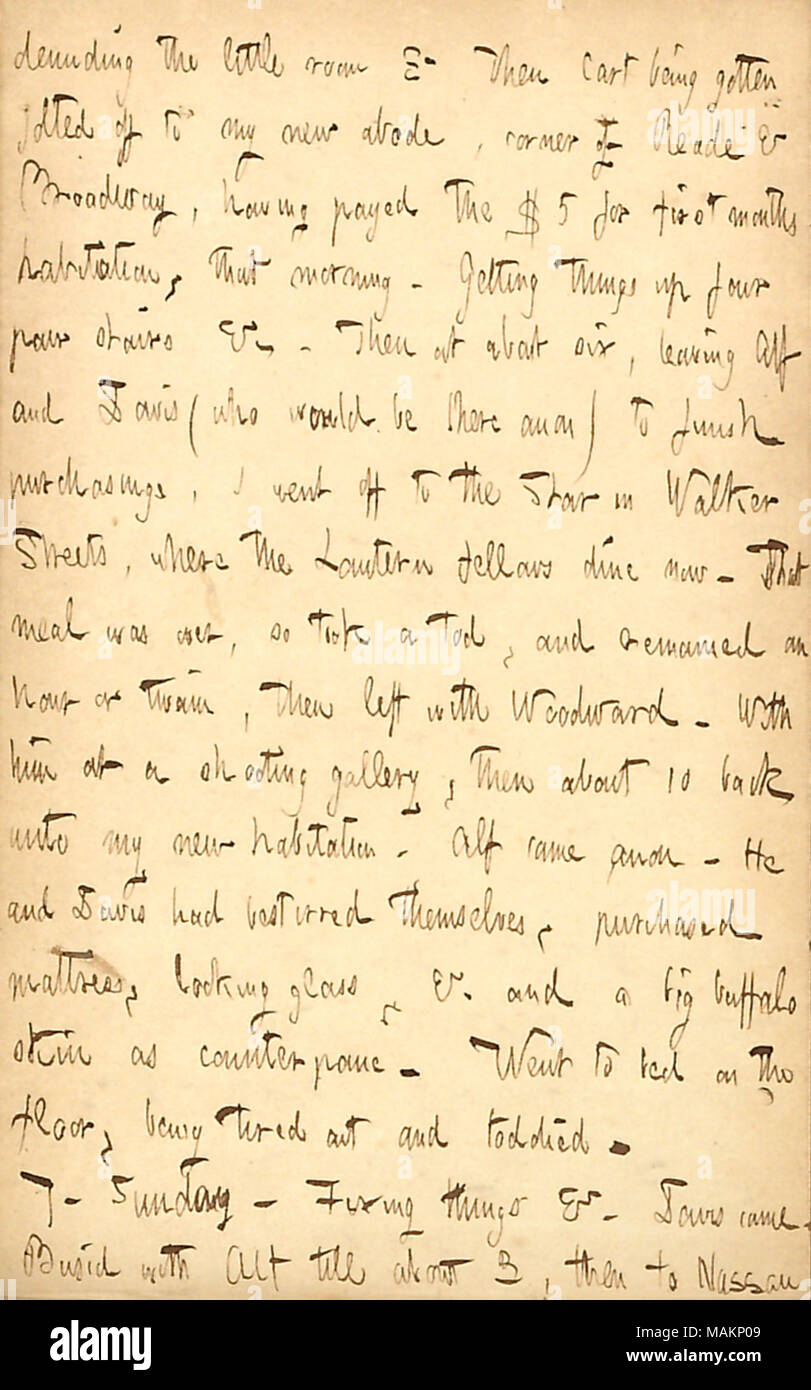 denuding the little room &c Then Cart being gotten
jolted off to my new abode, corner of Reade &
Broadway, having payed the $5 for first months
habitation, that morning. Getting things up four
pair stairs &c. Then at about six, leaving Alf
and Davis (who would be there anon) to finish
purchasings, I went off to the Star in Walker
Streets, where the Lantern fellows dine now. That
meal was over, so took a tod, and remained an
hour or twain, then left with Woodward. With
him at a shooting gallery, then about 10 back
unto my new habitation. Alf came anon. He
and Davis had bestirred themselves, purchased
mattress, looking glass, &c. and a big buffalo
skin as counterpane. Went to bed on the
floor, being tired out and toddied.
7. Sunday. Fixing things &c. Davis came.
Busied with Alf till about 3, then to Nassau
alamy
Image ID: MAKP09
www.alamy.com